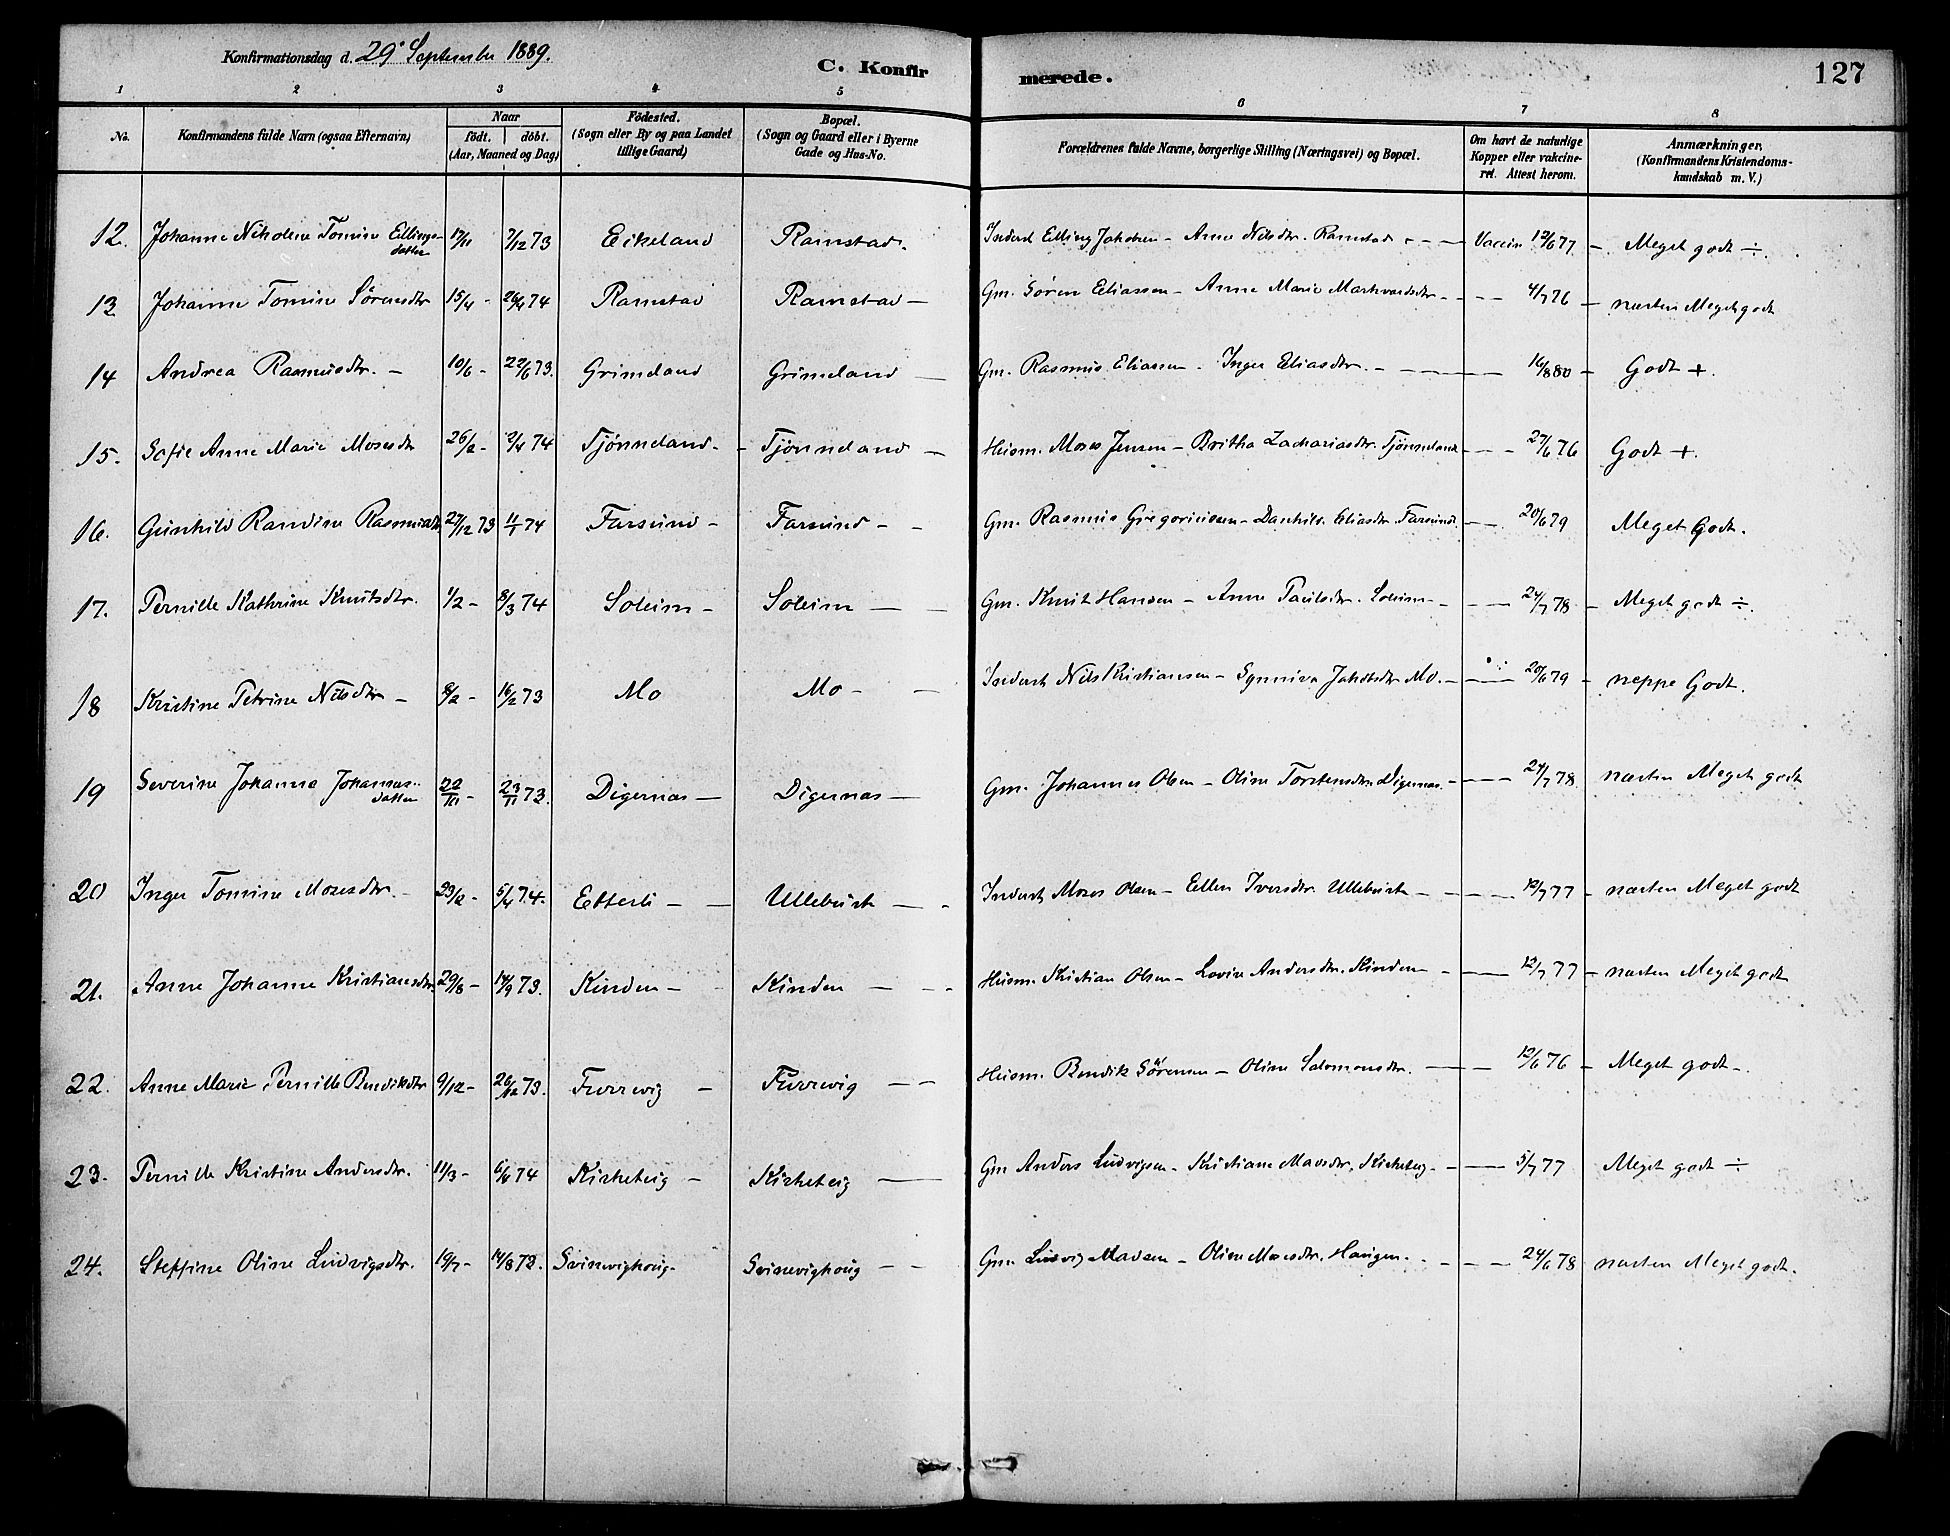 Konfirmationsdag d. 29' September 1889.
C. Konfirmerede.
127
1 2 3 4 5 6 7 8
No. Konfirmandens fulde Navn (ogsaa Efternavn) Naar født. døbt. (Aar, Maaned og Dag) Fødested. (Sogn eller By og paa Landet tillige Gaard) Bopæl. (Sogn og Gaard eller i Byerne Gade og Hus-No. Forældrenes fulde Navne, borgerlige Stilling (Næringsvei) og Bopæl. Om havt de naturlige Kopper eller vakcineret. Attest herom. Anmærkninger, (Konfirmandens Kristendomskundskab m. V.)
12. Johanne Nikoline Tomine Ellings-datter 17/11 7/12 73 Eikeland Ramstad. Inderst Elling Jakobsen - Anne Nilsdtr. Ramstad - - - Vaccin 12/6 77 - Meget godt ÷.
13 Johanne Tomine Sörensdtr 15/4 - 26/4 74 Ramstad Ramstad - Gm. Sören Eliassen - Anne Marie Markvardsdtr - - - 4/7 76 - næsten Meget godt
14 Andrea Rasmusdtr. - 10/6 - 22/6 73. Grimeland Grimeland - Gm. Rasmus Eliassen - Inger Eliasdtr. - - - 16/8 80 - Godt +.
15. Sofie Anne Marie Mosesdtr 26/2 - 2/4 74 Tjönneland - Tjönneland - Husm. Moses Jensen - Britha Zachariasdtr. Tjönneland - - - 27/6 76 Godt +.
16. Gunhild Randine Rasmusdtr 27/12 73 11/1 74 Farsund - Farsund - - Gm. Rasmus Gregoriussen - Danhild Eliasdtr. Farsund. - - 20/6 79 Meget Godt.
17. Pernille Kathrine Knutsdtr. 1/2 - 8/3 74 Soleim - Soleim - - Gm. Knut Hansen - Anne Paulsdtr. Soleim - - - 24/7 78 - Meget godt ÷.
18 Kristine Petrine Nilsdtr - 8/2 - 16/2 73 Mo Mo - - Inderst Nils Kristiansen - Synniva Jakobsdtr Mo. - - 20/6 79 - neppe Godt.
19 Severine Johanne Johannes-datter 22/11 - 23/11 73. Digernæs - Digernæs - Gm. Johannes Olsen - Oline Torstensdtr. Digernæs. - - 24/7 78. næsten Meget godt
20 Inger Tomine Mosesdtr. - 23/12 - 5/4 74. Etterli - - Ullebust - - Inderst Moses Olsen - Ellen Iversdtr. Ullebust - - - 12/7 77 - næsten Meget godt
21. Anne Johanne Kristiansdtr. 29/8 - 14/9 73. Kinden - Kinden - - - Husm. Kristian Olsen - Lovise Andersdtr. Kinden - - 12/7 77 - næsten Meget godt
22. Anne Marie Pernille Bendiksdtr 9/12 - 26/12 73. Furrevig - Furrevig - - Husm. Bendik Sörensen - Oline Salomonsdtr. - - 12/6 76 - Meget godt -.
23. Pernille Kristine Andersdtr. 11/3 - 6/4 74 Kirketeig - Kirketeig - Gm Anders Ludvigsen - Kristiane Madsdtr, Kirketeig - - - 5/7 77 Meget godt ÷
24. Steffine Oline Ludvigsdtr. 19/7 - 14/8 73. Svinevighoug - Svinevighoug - - Gm. Ludvig Madsen - Oline Mosesdtr. Haugen. - - - 24/6 78 næsten Meget godt.